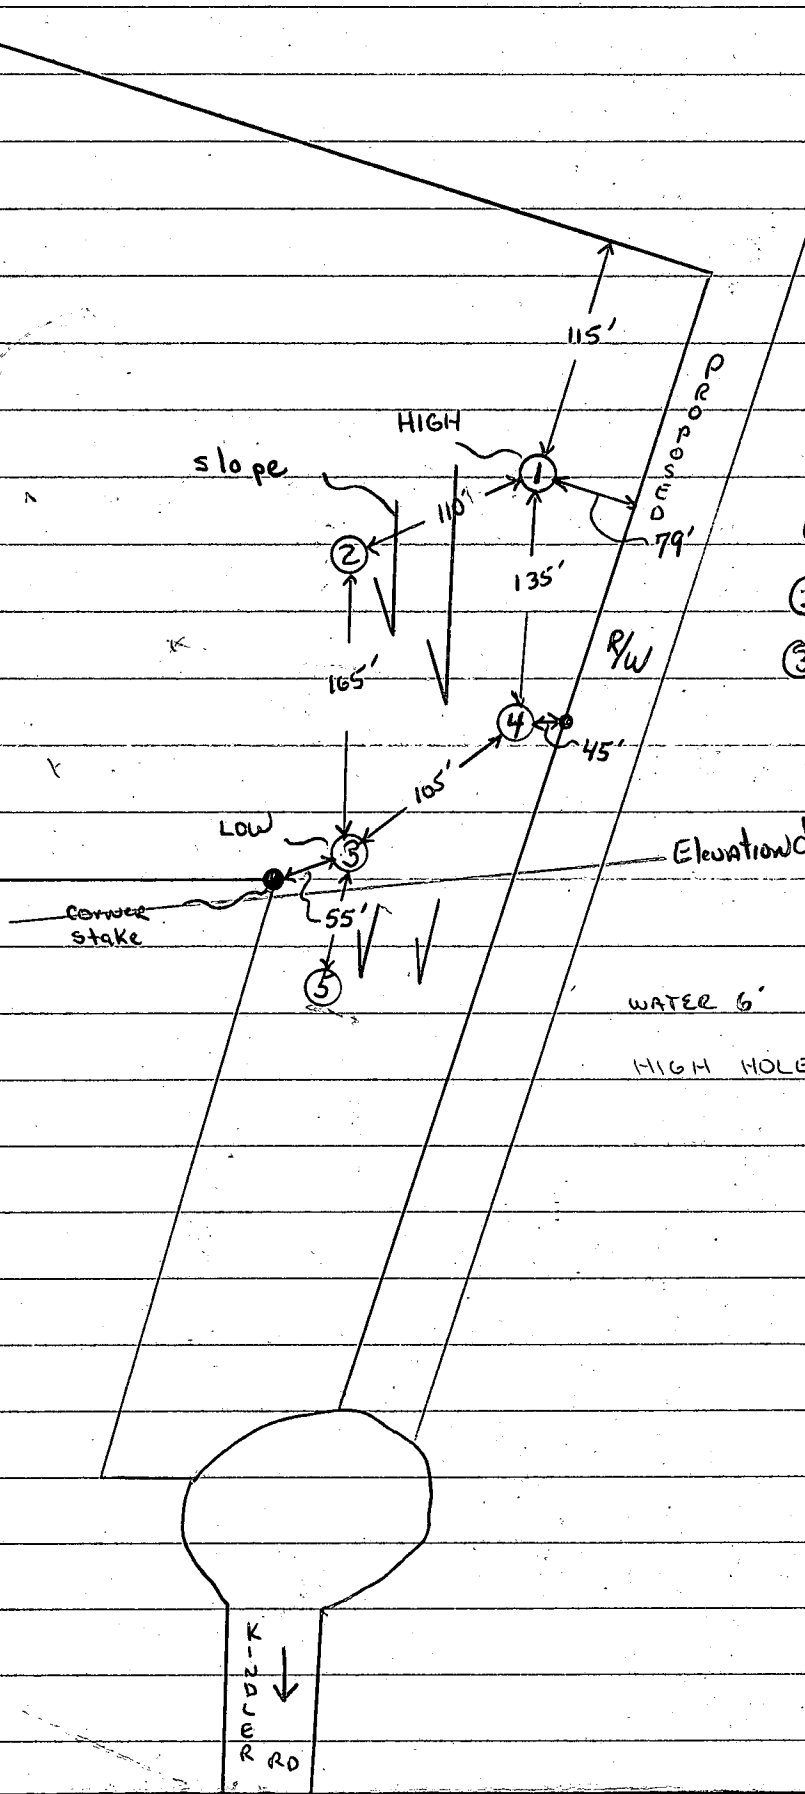 115'
PROPOSED
HIGH
slope
1
110'
2
79'
135'
165'
R/W
4
45'
105'
LOW
3
Elevation
corner
stake
55'
5
WATER 6'
HIGH HOLE
3
KINDLER RD